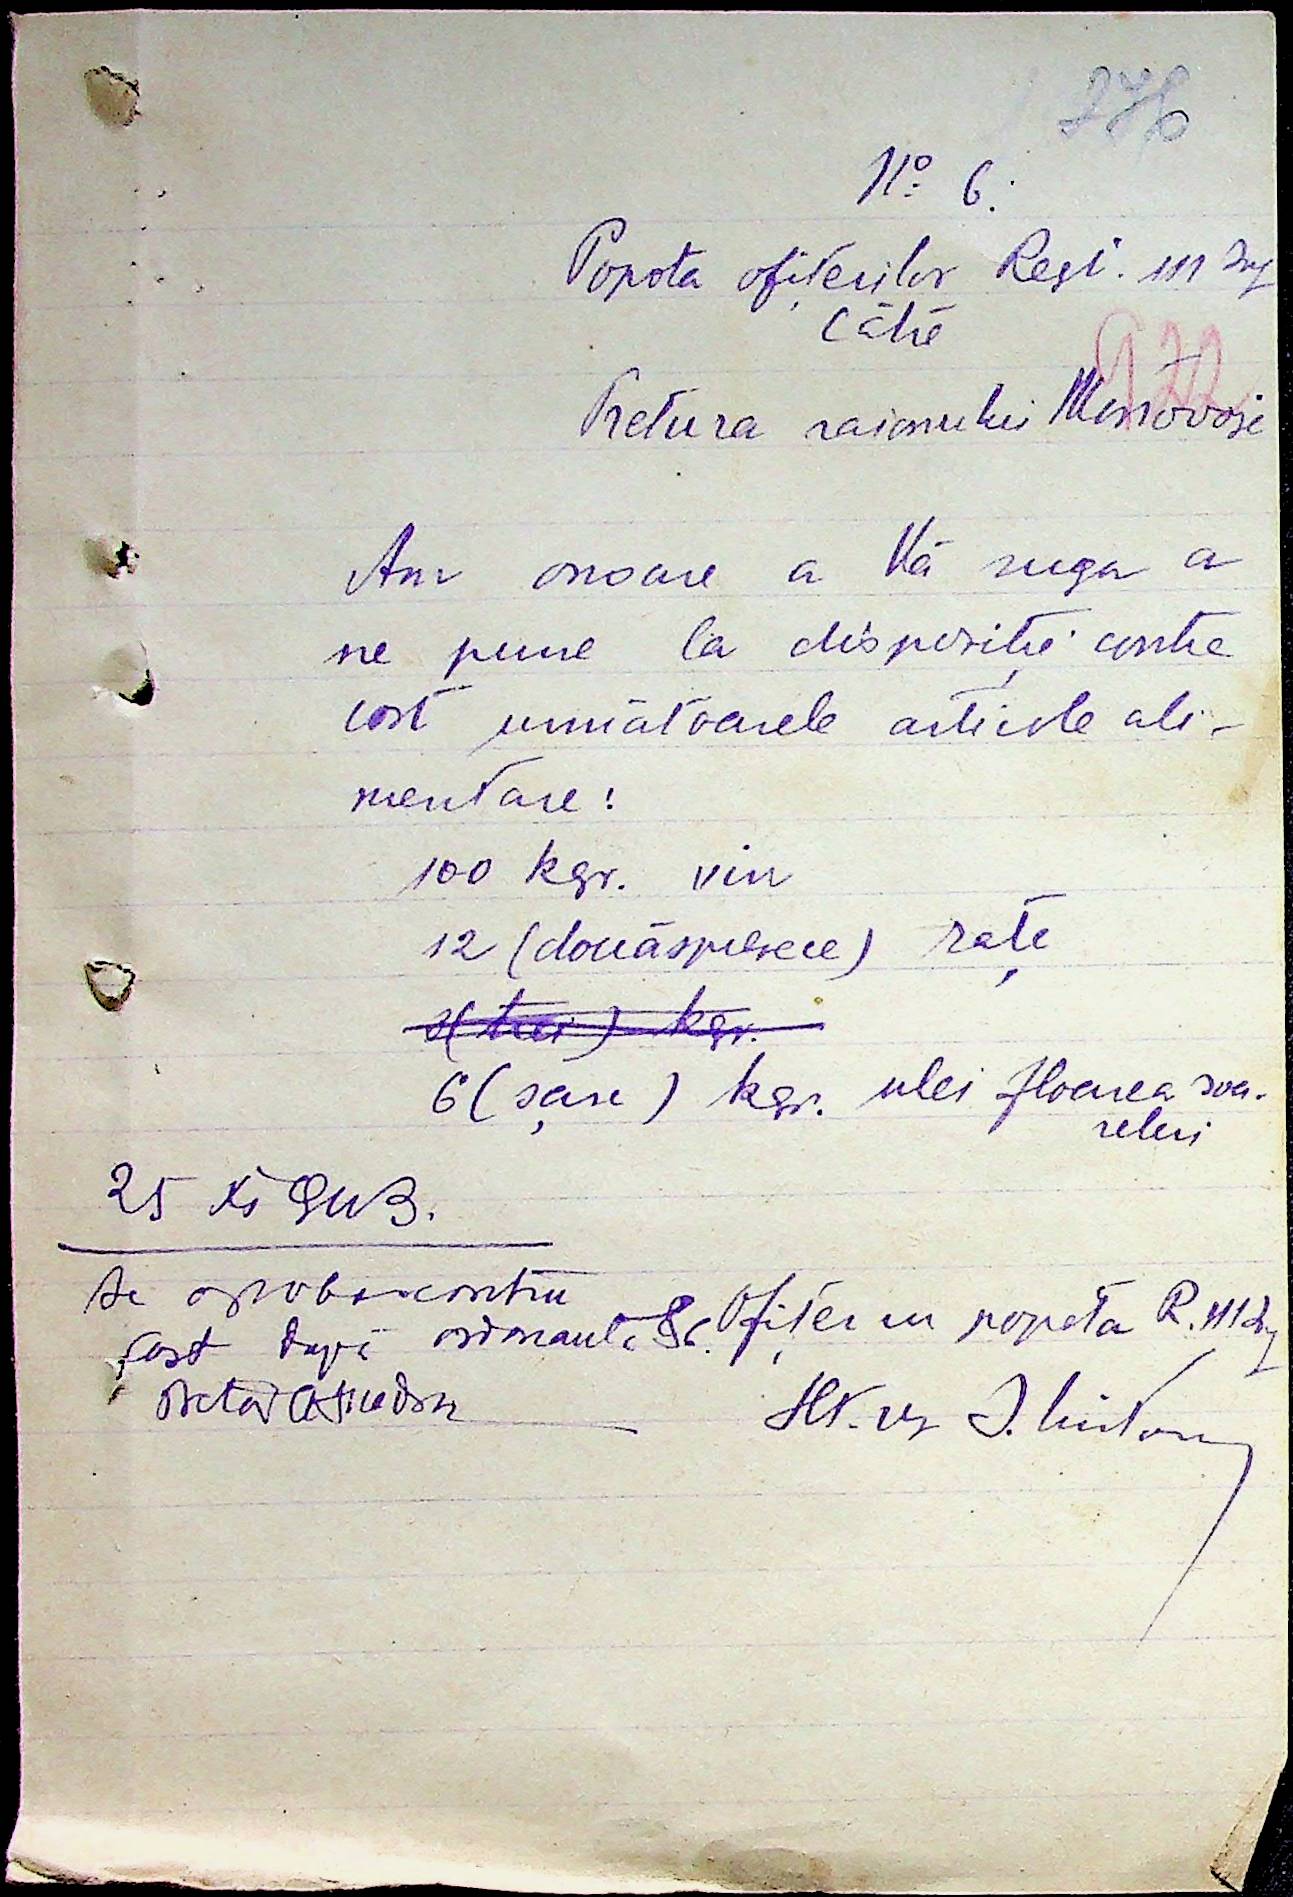 276
No 6.
Popota ofițerilor Regt. 111 Inf
Către
972
Pretura raionului Mostovoje
Am onoare a Vă ruga a
ne pune la dispoziție contra
cost următoarele articole ali-
mentare:
100 kgr. vin
12 (douăsprezece) rațe
3 (trei) kgr.
6 (șase) kgr. ulei floarea soa-
relui
25 XI 943.
Se aprobă contra
cost după ordonanța
Ofițer cu popota R. 111 Inf